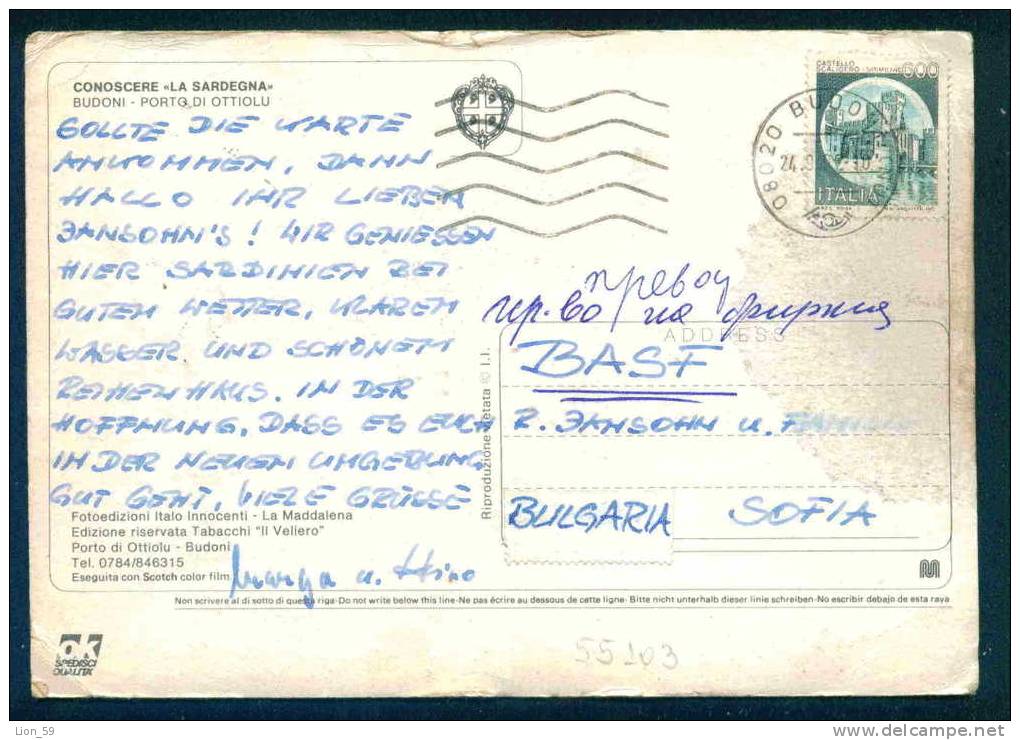 CONOSCERE «LA SARDEGNA»
BUDONI - PORTO DI OTTIOLU
SOLLTE DIE KARTE
ANKOMMEN, DANN
HALLO IHR LIEBEN
JANSOHN'S! WIR GENIESSEN
HIER SARDINIEN BEI
GUTEM WETTER, KLAREM
WASSER UND SCHÖNEM
REIHENHAUS. IN DER
HOFFNUNG, DASS ES EUCH
IN DER NEUEN UMGEBUNG
GUT GEHT, VIELE GRÜSSE
Marga u. Heino
Fotoedizioni Italo Innocenti - La Maddalena
Edizione riservata Tabacchi "Il Veliero"
Porto di Ottiolu - Budoni
Tel. 0784/846315
Eseguita con Scotch color film
Riproduzione vietata © I.I.
CASTELLO
SCALIGERO - SIRMIONE
600
ITALIA
08020 BUDONI
24.9
превод
пр-во на фирма
ADDRESS
BASF
R. JANSOHN u. FAMILIE
BULGARIA SOFIA
Non scrivere al di sotto di questa riga-Do not write below this line-Ne pas écrire au dessous de cette ligne-Bitte nicht unterhalb dieser linie schreiben-No escribir debajo de esta raya
ok
SPEDISCI
QUALITA'
55103
Lion_59
www.delcampe.net